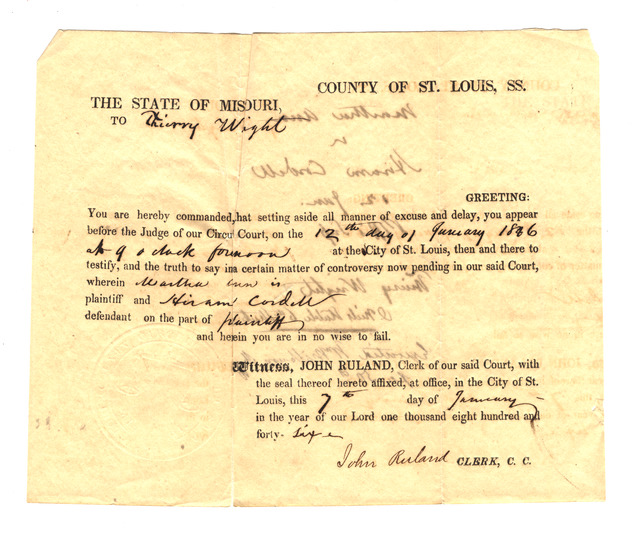 COUNTY OF ST. LOUIS, SS.
THE STATE OF MISSOURI,
TO Thierry Wight
GREETING:
You are hereby commanded, that setting aside all manner of excuse and delay, you appear
before the Judge of our Circuit Court, on the 12th day of January 1846
at 9 o clock forenoon at the City of St. Louis, then and there to
testify, and the truth to say in a certain matter of controversy now pending in our said Court,
wherein Martha Ann is
plaintiff and Hiram Cordell
defendant on the part of plaintiff
and herein you are in no wise to fail.
Witness, JOHN RULAND, Clerk of our said Court, with
the seal thereof hereto affixed, at office, in the City of St.
Louis, this 7th day of January
in the year of our Lord one thousand eight hundred and
forty-six
John Ruland CLERK, C. C.